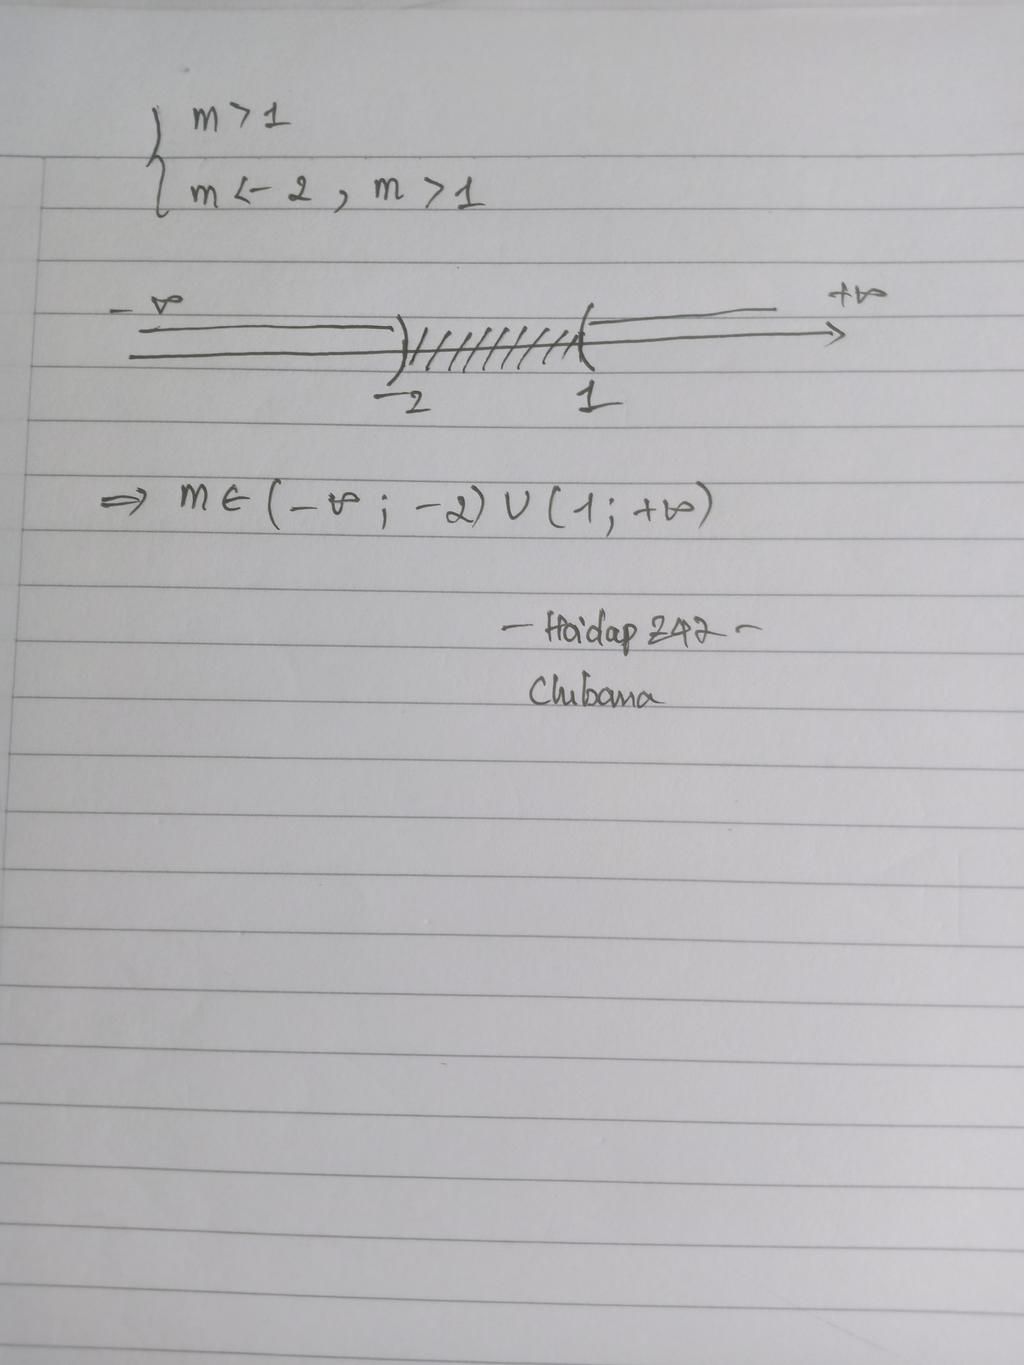 { m > 1
m < -2 , m > 1
-∞ +∞
-2 1
⇒ m ∈ (-∞ ; -2) ∪ (1 ; +∞)
- Hoidap 247 -
Chibana